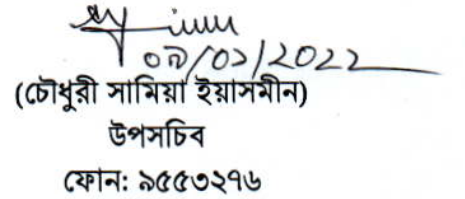 ০৯/০১/2022
(চৌধুরী সামিয়া ইয়াসমীন)
উপসচিব
ফোন: ৯৫৫৩২৭৬